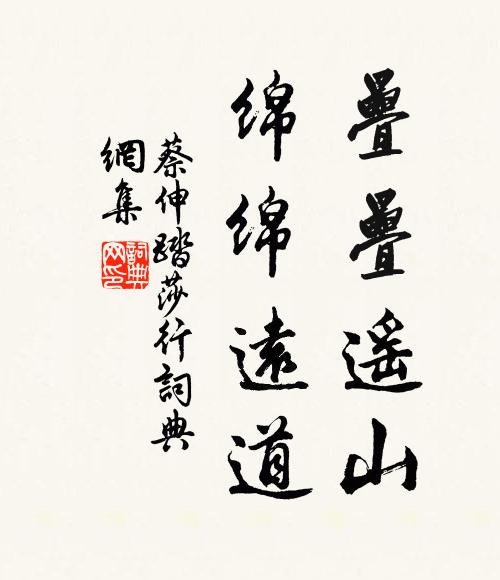 疊疊遥山
綿綿遠道
蔡伸踏莎行詞典
網集
詞典
网印